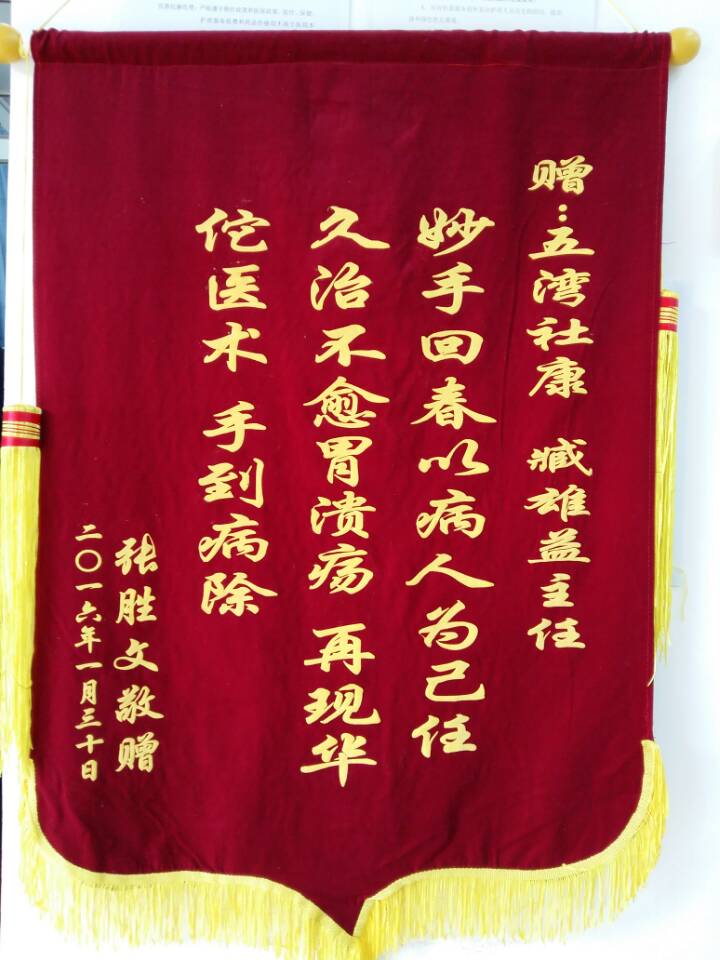 赠:五湾社康 臧雄益主任
妙手回春以病人为己任
久治不愈胃溃疡 再现华
佗医术 手到病除
张胜文敬赠
二〇一六年一月三十日